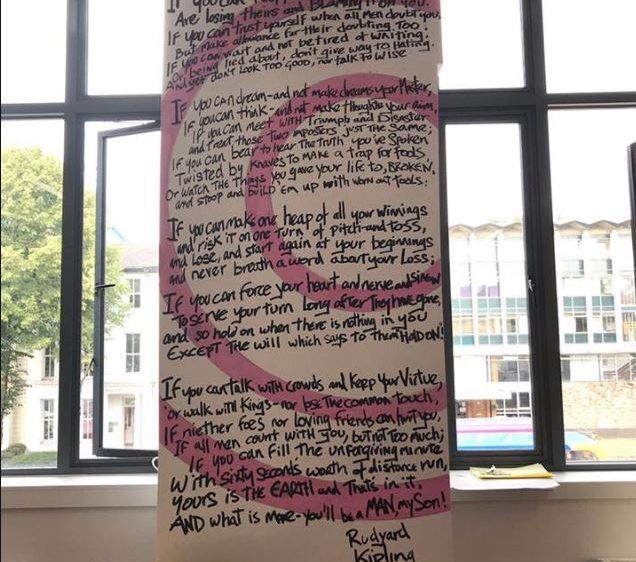 If you can
Are losing theirs and Blaming it on you.
If you can trust yourself when all men doubt you,
But make allowance for their doubting Too:
If you can wait and not be tired of waiting.
or being lied about, don't give way to Hating.
and yet don't Look Too Good, nor talk to wise
If you can dream-and not make dreams your Master,
If you can think-and not make thoughts your aim,
if you can meet with Triumph and Disaster
and treat those two imposters just the same;
If you can bear to hear the truth you've Spoken
Twisted by Knaves to make a Trap for fools,
Or watch the things you gave your life to, BROKEN,
and stoop and build 'em up with worn out tools:
If you can make one heap of all your winnings
and risk it on one turn of pitch-and-toss,
and Lose, and start again at your beginnings
and never breath a word about your Loss;
If you can Force your heart and nerve and sinew
To serve your turn Long after They have gone,
and so hold on when there is nothing in you
Except The will which says to them HOLD ON!
If you can talk with crowds and Kepp your Virtue,
or walk with Kings-nor lose the common touch,
If niether foes nor loving friends can hurt you,
If all men count with you, but not too much;
If you can fill the unforgiving minute
With sixty seconds worth of distance run,
Yours is the EARTH and That's in it,
AND what is More-you'll be a MAN, my Son!
Rudyard
Kipling